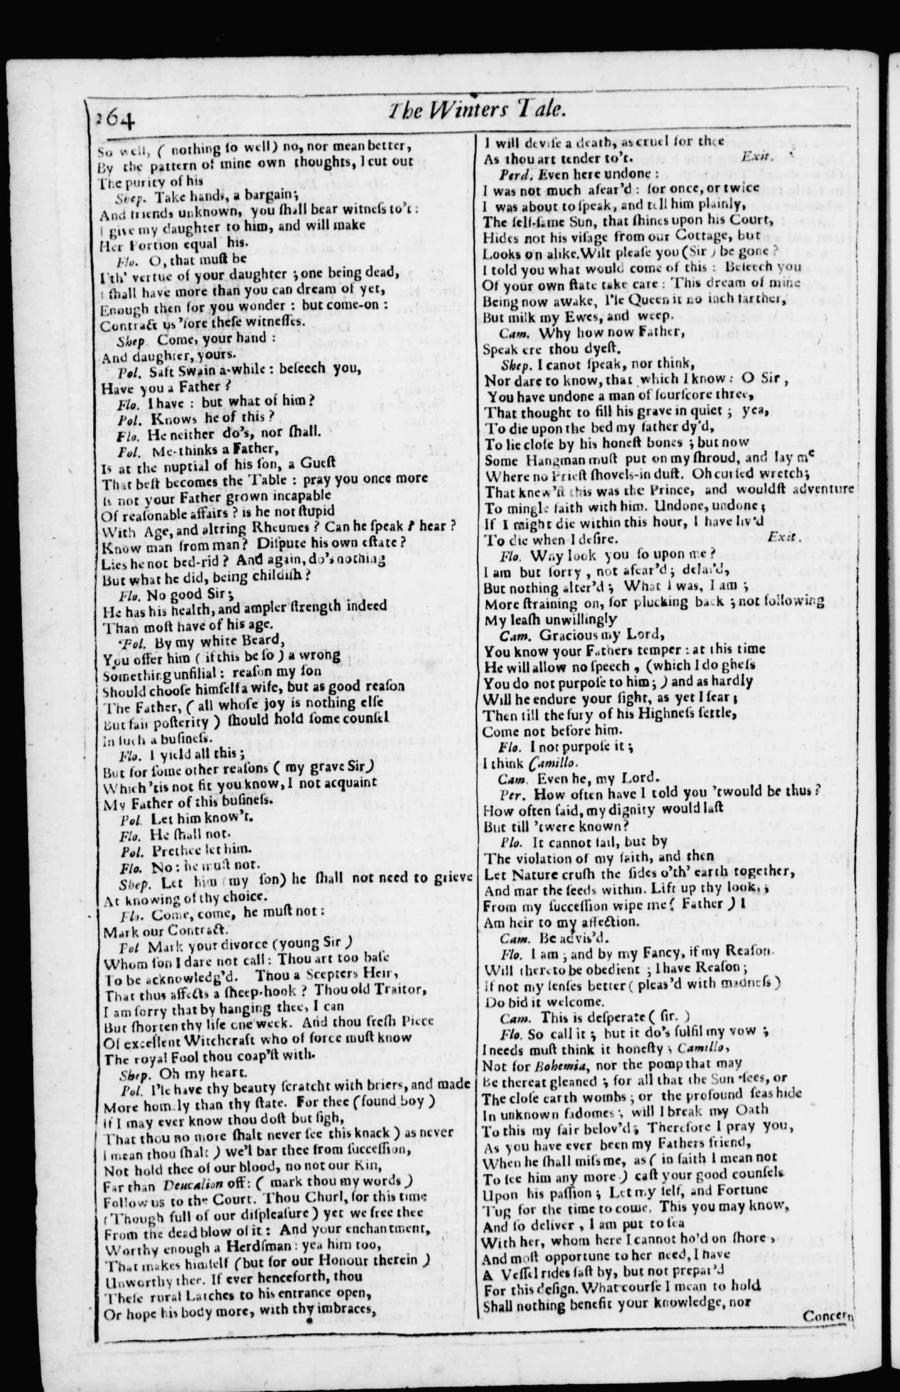 264
The Winters Tale.
So well, ( nothing ſo well) no, nor mean better,
By the pattern of mine own thoughts, I cut out
The purity of his
Shep. Take hands, a bargain;
And friends unknown, you ſhall bear witneſs to't :
I give my daughter to him, and will make
Her Portion equal his.
Flo. O, that muſt be
I'th' vertue of your daughter ; one being dead,
I ſhall have more than you can dream of yet,
Enough then for you wonder : but come-on :
Contract us 'fore theſe witneſſes.
Shep Come, your hand :
And daughter, yours.
Pol. Saft Swain a-while : beſeech you,
Have you a Father ?
Flo. I have : but what of him?
Pol. Knows he of this ?
Flo. He neither do's, nor ſhall.
Pol. Me-thinks a Father,
Is at the nuptial of his ſon, a Gueſt
That beſt becomes the Table : pray you once more
Is not your Father grown incapable
Of reaſonable affairs ? is he not ſtupid
With Age, and altring Rheumes ? Can he ſpeak ? hear ?
Know man from man? Diſpute his own eſtate ?
Lies he not bed-rid ? And again, do's nothing
But what he did, being childiſh ?
Flo. No good Sir ;
He has his health, and ampler ſtrength indeed
Than moſt have of his age.
Pol. By my white Beard,
You offer him ( if this be ſo ) a wrong
Something unfilial : reaſon my ſon
Should chooſe himſelf a wife, but as good reaſon
The Father, ( all whoſe joy is nothing elſe
But fair poſterity ) ſhould hold ſome counſel
In ſuch a buſineſs.
Flo. I yield all this ;
But for ſome other reaſons ( my grave Sir)
Which 'tis not fit you know, I not acquaint
My Father of this buſineſs.
Pol. Let him know't.
Flo. He ſhall not.
Pol. Prethee let him.
Flo. No : he muſt not.
Shep. Let him (my ſon) he ſhall not need to grieve
At knowing of thy choice.
Flo. Come, come, he muſt not :
Mark our Contract.
Pol Mark your divorce (young Sir )
Whom ſon I dare not call : Thou art too baſe
To be acknowledg'd. Thou a Scepters Heir,
That thus affects a ſheep-hook ? Thou old Traitor,
I am ſorry that by hanging thee, I can
But ſhorten thy life one week. And thou freſh Piece
Of excellent Witchcraft who of force muſt know
The royal Fool thou coap'ſt with.
Shep. Oh my heart.
Pol. I'le have thy beauty ſcratcht with briers, and made
More homely than thy ſtate. For thee (found boy )
If I may ever know thou doſt but ſigh,
That thou no more ſhalt never ſee this knack ) as never
I mean thou ſhalt ) we'l bar thee from ſucceſſion,
Not hold thee of our blood, no not our Kin,
Far than Deucalion off : ( mark thou my words )
Follow us to the Court. Thou Churl, for this time
(Though full of our diſpleaſure ) yet we free thee
From the dead blow of it : And your enchantment,
Worthy enough a Herdſman : yea him too,
That makes himſelf (but for our Honour therein )
Unworthy thee. If ever henceforth, thou
Theſe rural Latches to his entrance open,
Or hope his body more, with thy imbraces,
I will deviſe a death, as cruel for thee
As thou art tender to't. Exit.
Perd. Even here undone :
I was not much afear'd : for once, or twice
I was about to ſpeak, and tell him plainly,
The ſelf-ſame Sun, that ſhines upon his Court,
Hides not his viſage from our Cottage, but
Looks on alike. Wilt pleaſe you (Sir ) be gone ?
I told you what would come of this : Beſeech you
Of your own ſtate take care : This dream of mine
Being now awake, I'le Queen it no inch farther,
But milk my Ewes, and weep.
Cam. Why how now Father,
Speak ere thou dyeſt.
Shep. I canot ſpeak, nor think,
Nor dare to know, that which I know : O Sir ,
You have undone a man of fourſcore three,
That thought to fill his grave in quiet ; yea,
To die upon the bed my father dy'd,
To lie cloſe by his honeſt bones ; but now
Some Hangman muſt put on my ſhroud, and lay me
Where no Prieſt ſhovels-in duſt. Oh curſed wretch;
That knew'ſt this was the Prince, and wouldſt adventure
To mingle faith with him. Undone, undone;
If I might die within this hour, I have liv'd
To die when I deſire. Exit.
Flo. Way look you ſo upon me ?
I am but ſorry , not afear'd ; delai'd,
But nothing alter'd ; What I was, I am ;
More ſtraining on, for plucking back ; not following
My leaſh unwillingly
Cam. Gracious my Lord,
You know your Fathers temper : at this time
He will allow no ſpeech , (which I do gheſs
You do not purpoſe to him ; ) and as hardly
Will he endure your ſight, as yet I fear ;
Then till the fury of his Highneſs ſettle,
Come not before him.
Flo. I not purpoſe it ;
I think Camillo.
Cam. Even he, my Lord.
Per. How often have I told you 'twould be thus ?
How often ſaid, my dignity would laſt
But till 'twere known?
Plo. It cannot fail, but by
The violation of my faith, and then
Let Nature cruſh the ſides o'th' earth together,
And mar the ſeeds within. Lift up thy looks ;
From my ſucceſſion wipe me ( Father ) I
Am heir to my affection.
Cam. Be advis'd.
Flo. I am ; and by my Fancy, if my Reaſon
Will thereto be obedient ; I have Reaſon ;
If not my ſenſes better ( pleas'd with madneſs )
Do bid it welcome.
Cam. This is deſperate ( ſir. )
Flo. So call it ; but it do's fulfil my vow ;
I needs muſt think it honeſty ; Camillo,
Not for Bohemia, nor the pomp that may
Be thereat gleaned ; for all that the Sun ſees, or
The cloſe earth wombs ; or the profound ſeas hide
In unknown fadomes ; will I break my Oath
To this my fair belov'd ; Therefore I pray you,
As you have ever been my Fathers friend,
When he ſhall miſs me, as ( in faith I mean not
To ſee him any more ) caſt your good counſels
Upon his paſſion ; Let my ſelf, and Fortune
Tug for the time to come. This you may know,
And ſo deliver , I am put to ſea
With her, whom here I cannot ho'd on ſhore ,
And moſt opportune to her need, I have
A Veſſel rides faſt by, but not prepar'd
For this deſign. What courſe I mean to hold
Shall nothing benefit your knowledge, nor
Concern